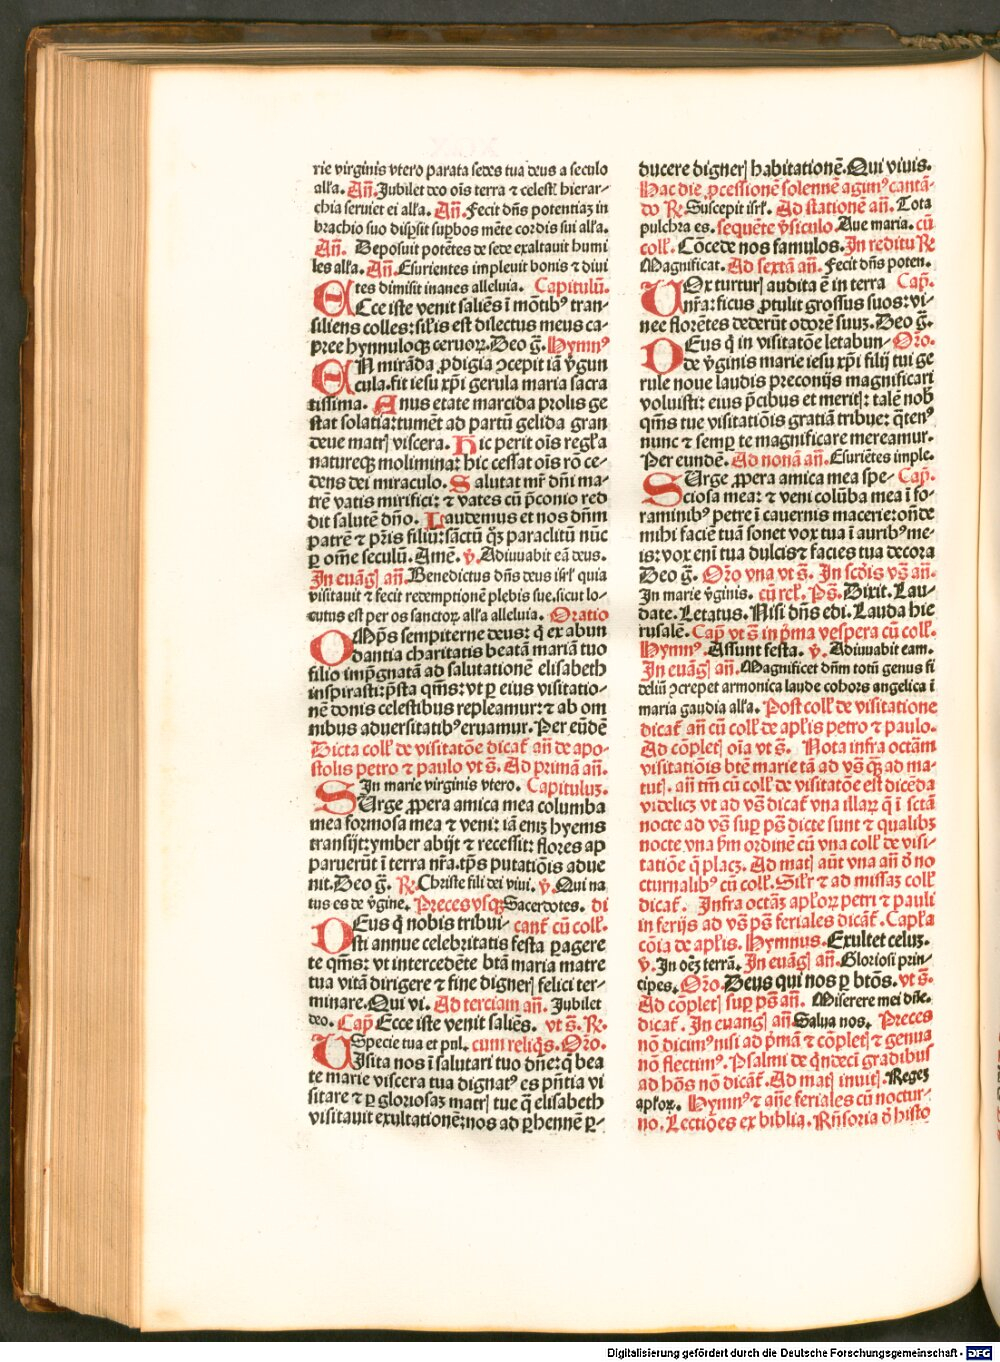 rie virginis vtero parata sedes tua deus a seculo
all'a. Añ. Jubilet deo oĩs terra ⁊ celest' hierar-
chia seruiet ei all'a. Añ. Fecit dñs potentiaz in
brachio suo dispsit supbos mẽte cordis sui all'a.
Añ. Deposuit potẽtes de sede exaltauit humi
les all'a. Añ. Esurientes impleuit bonis ⁊ diui
tes dimisit inanes alleluia. Capitulũ.
ECce iste venit saliẽs ĩ mõtibꝰ tran-
siliens colles: sil'is est dilectus meus ca-
pree hynnuloqꝫ ceruoꝝ. Deo g̃. Hymnꝰ
EN mirãda ꝓdigia ꝯcepit iã v̾gun
cula. fit iesu xp̃i gerula maria sacra
tissima. Anus etate marcida prolis ge
stat solatia: tumẽt ad partũ gelida gran
deue matrꝭ viscera. Hic perit oĩs regl'a
natureqꝫ molimina: hic cessat oĩs rõ ce-
dens dei miraculo. Salutat mr̃ dñi ma-
trẽ vatis mirifici: ⁊ vates cũ p̾conio red
dit salutẽ dño. Laudemus et nos dñm
patrẽ ⁊ pr̃is filiũ: sãctũ qꝫ paraclitũ nũc
ꝑ om̃e seculũ. Amẽ. v̾. Adiuuabit eã deus.
In euãgꝭ añ. Benedictus dñs deus isrl' quia
visitauit ⁊ fecit redemptionẽ plebis sue. sicut lo-
cutus est per os sanctoꝝ all'a alleluia. Oratio
OMp̃s sempiterne deus: q̃ ex abun
dantia charitatis beatã mariã tuo
filio imp̾gnatã ad salutationẽ elisabeth
inspirasti: p̾sta q̃ms: vt ꝑ eius visitatio-
nẽ donis celestibus repleamur: ⁊ ab om
nibus aduersitatibꝰ eruamur. Per eũdẽ
Dicta coll' de visitatõe dicat' añ de apo-
stolis petro ⁊ paulo vt s̃. Ad primã añ.
In marie virginis vtero. Capitulum.
SUrge ꝓpera amica mea columba
mea formosa mea ⁊ veni: iã eniꝫ hyems
transijt: ymber abijt ⁊ recessit: flores ap
paruerũt ĩ terra nr̃a. tp̃s putatiõis adue
nit. Deo g̃. ℟. Christe fili dei viui. v̾. Qui na
tus es de v̾gine. Preces vsqꝫ Sacerdotes. di
DEus q̃ nobis tribui- cant' cũ coll'.
sti annue celebritatis festa ꝑagere
te q̃ms: vt intercedẽte btã maria matre
tua vitã dirigere ⁊ fine dignerꝭ felici ter-
minare. Qui vi. Ad terciam añ. Jubilet
deo. Cap̃ Ecce iste venit saliẽs. vt s̃. ℟.
Specie tua et pul. cum reliq̃s. Oro.
VIsita nos ĩ salutari tuo dñe: q̃ bea
te marie viscera tua dignatꝰ es p̃ntia vi
sitare ⁊ ꝑ gloriosaꝫ matrꝭ tue q̃ elisabeth
visitauit exultationẽ: nos ad ꝑhenne ꝑ-
ducere dignerꝭ habitationẽ. Qui viuis.
Hac die ꝓcessionẽ solennẽ agunꝰ cantã-
do ℟. Suscepit isrl'. Ad stationẽ añ. Tota
pulchra es. sequẽte v̾siculo. Aue maria. cũ
coll'. Cõcede nos famulos. In reditu ℟
Magnificat. Ad sextã añ. Fecit dñs poten.
VOx turturꝭ audita ẽ in terra Cap̃.
nr̃a: ficus ꝓtulit grossus suos: vi-
nee florẽtes dederũt odorẽ suuꝫ. Deo g̃.
DEus q̃ in visitatõe letabun- Oro.
de v̾ginis marie iesu xp̃i filij tui ge
rule noue laudis preconijs magnificari
voluisti: eius p̾cibus et meritꝭ: talẽ nob̃
q̃ms tue visitatiõis gratiã tribue: q̃tenꝰ
nunc ⁊ semꝑ te magnificare mereamur.
Per eundẽ. Ad nonã añ. Esuriẽtes imple.
SUrge ꝓpera amica mea spe- Cap̃.
ciosa mea: ⁊ veni colũba mea ĩ fo-
raminibꝰ petre ĩ cauernis macerie: oñde
mihi faciẽ tuã sonet vox tua ĩ auribꝰ me-
is: vox enĩ tua dulcis ⁊ facies tua decora
Deo g̃. Oro vna vt s̃. In scd̃is vs̃ añ.
In marie v̾ginis. cũ rel'. Ps̃. Dixit. Lau-
date. Letatus. Nisi dñs edi. Lauda hie
rusalẽ. Cap̃ vt s̃ in p̾ma vespera cũ coll'.
Hymnꝰ. Assunt festa. v̾. Adiuuabit eam.
In euãgꝭ añ. Magnificet dñm totũ genus fi
deliũ ꝯcrepet armonica laude cohors angelica ĩ
maria gaudia all'a. Post coll' de visitatione
dicat' añ cũ coll' de apl'is petro ⁊ paulo.
Ad cõpletꝭ oĩa vt s̃. Nota infra octãm
visitatiõis btẽ marie tã ad vs̃ qꝫ ad ma-
tutꝭ. añ tm̃ cũ coll' de visitatõe est dicẽda
videlicꝫ vt ad vs̃ dicat' vna illaꝝ q̃ ĩ sctã
nocte ad vs̃ suꝑ ps̃ dicte sunt ⁊ qualibꝫ
nocte vna ẞm ordinẽ cũ vna coll' de visi-
tatiõe q̃ placꝫ. Ad matꝭ aũt vna añ ð no
cturnalibꝰ cũ coll'. Sil'r ⁊ ad missaꝫ coll'
dicat'. Infra octãꝫ apl'oꝝ petri ⁊ pauli
in ferijs ad vs̃ ps̃ feriales dicãt'. Capl'a
cõia de apl'is. Hymnus. Exultet celuꝫ.
v̾. In oẽꝫ terrã. In euãgꝭ añ. Gloriosi prin-
cipes. Oro. Deus qui nos ꝑ btõs. vt s̃.
Ad cõpletꝭ suꝑ ps̃ añ. Miserere mei dñe.
dicat'. In euangꝭ añ Salua nos. Preces
nõ dicimꝰ nisi ad p̾mã ⁊ cõpletꝭ ⁊ genua
nõ flectimꝰ. Psalmi de q̃ndecĩ gradibus
ad ho̾s nõ dicãt'. Ad matꝭ inuitꝭ. Regeꝫ
apl'oꝝ. Hymnꝰ ⁊ añe feriales cũ noctur-
no. Lectiões ex biblia. Rñsoria ð histo
Digitalisierung gefördert durch die Deutsche Forschungsgemeinschaft - DFG